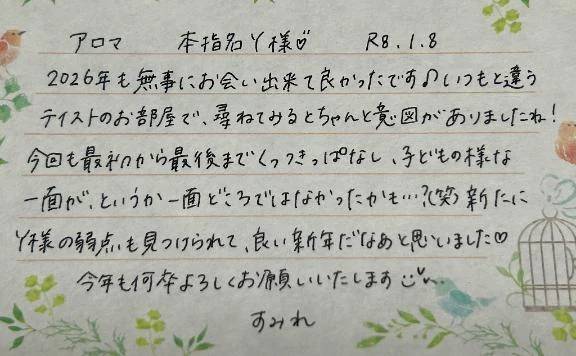 アロマ 本指名Y様♡ R8.1.8
2026年も無事にお会い出来て良かったです♪いつもと違う
テイストのお部屋で、尋ねてみるとちゃんと意図がありましたね!
今回も最初から最後までくっつきっぱなし、子どもの様な
一面が、というか一面どころではなかったかも…?(笑)新たに
Y様の弱点も見つけられて、良い新年だなあと思いました♡
今年も何卒よろしくお願いいたします
すみれ